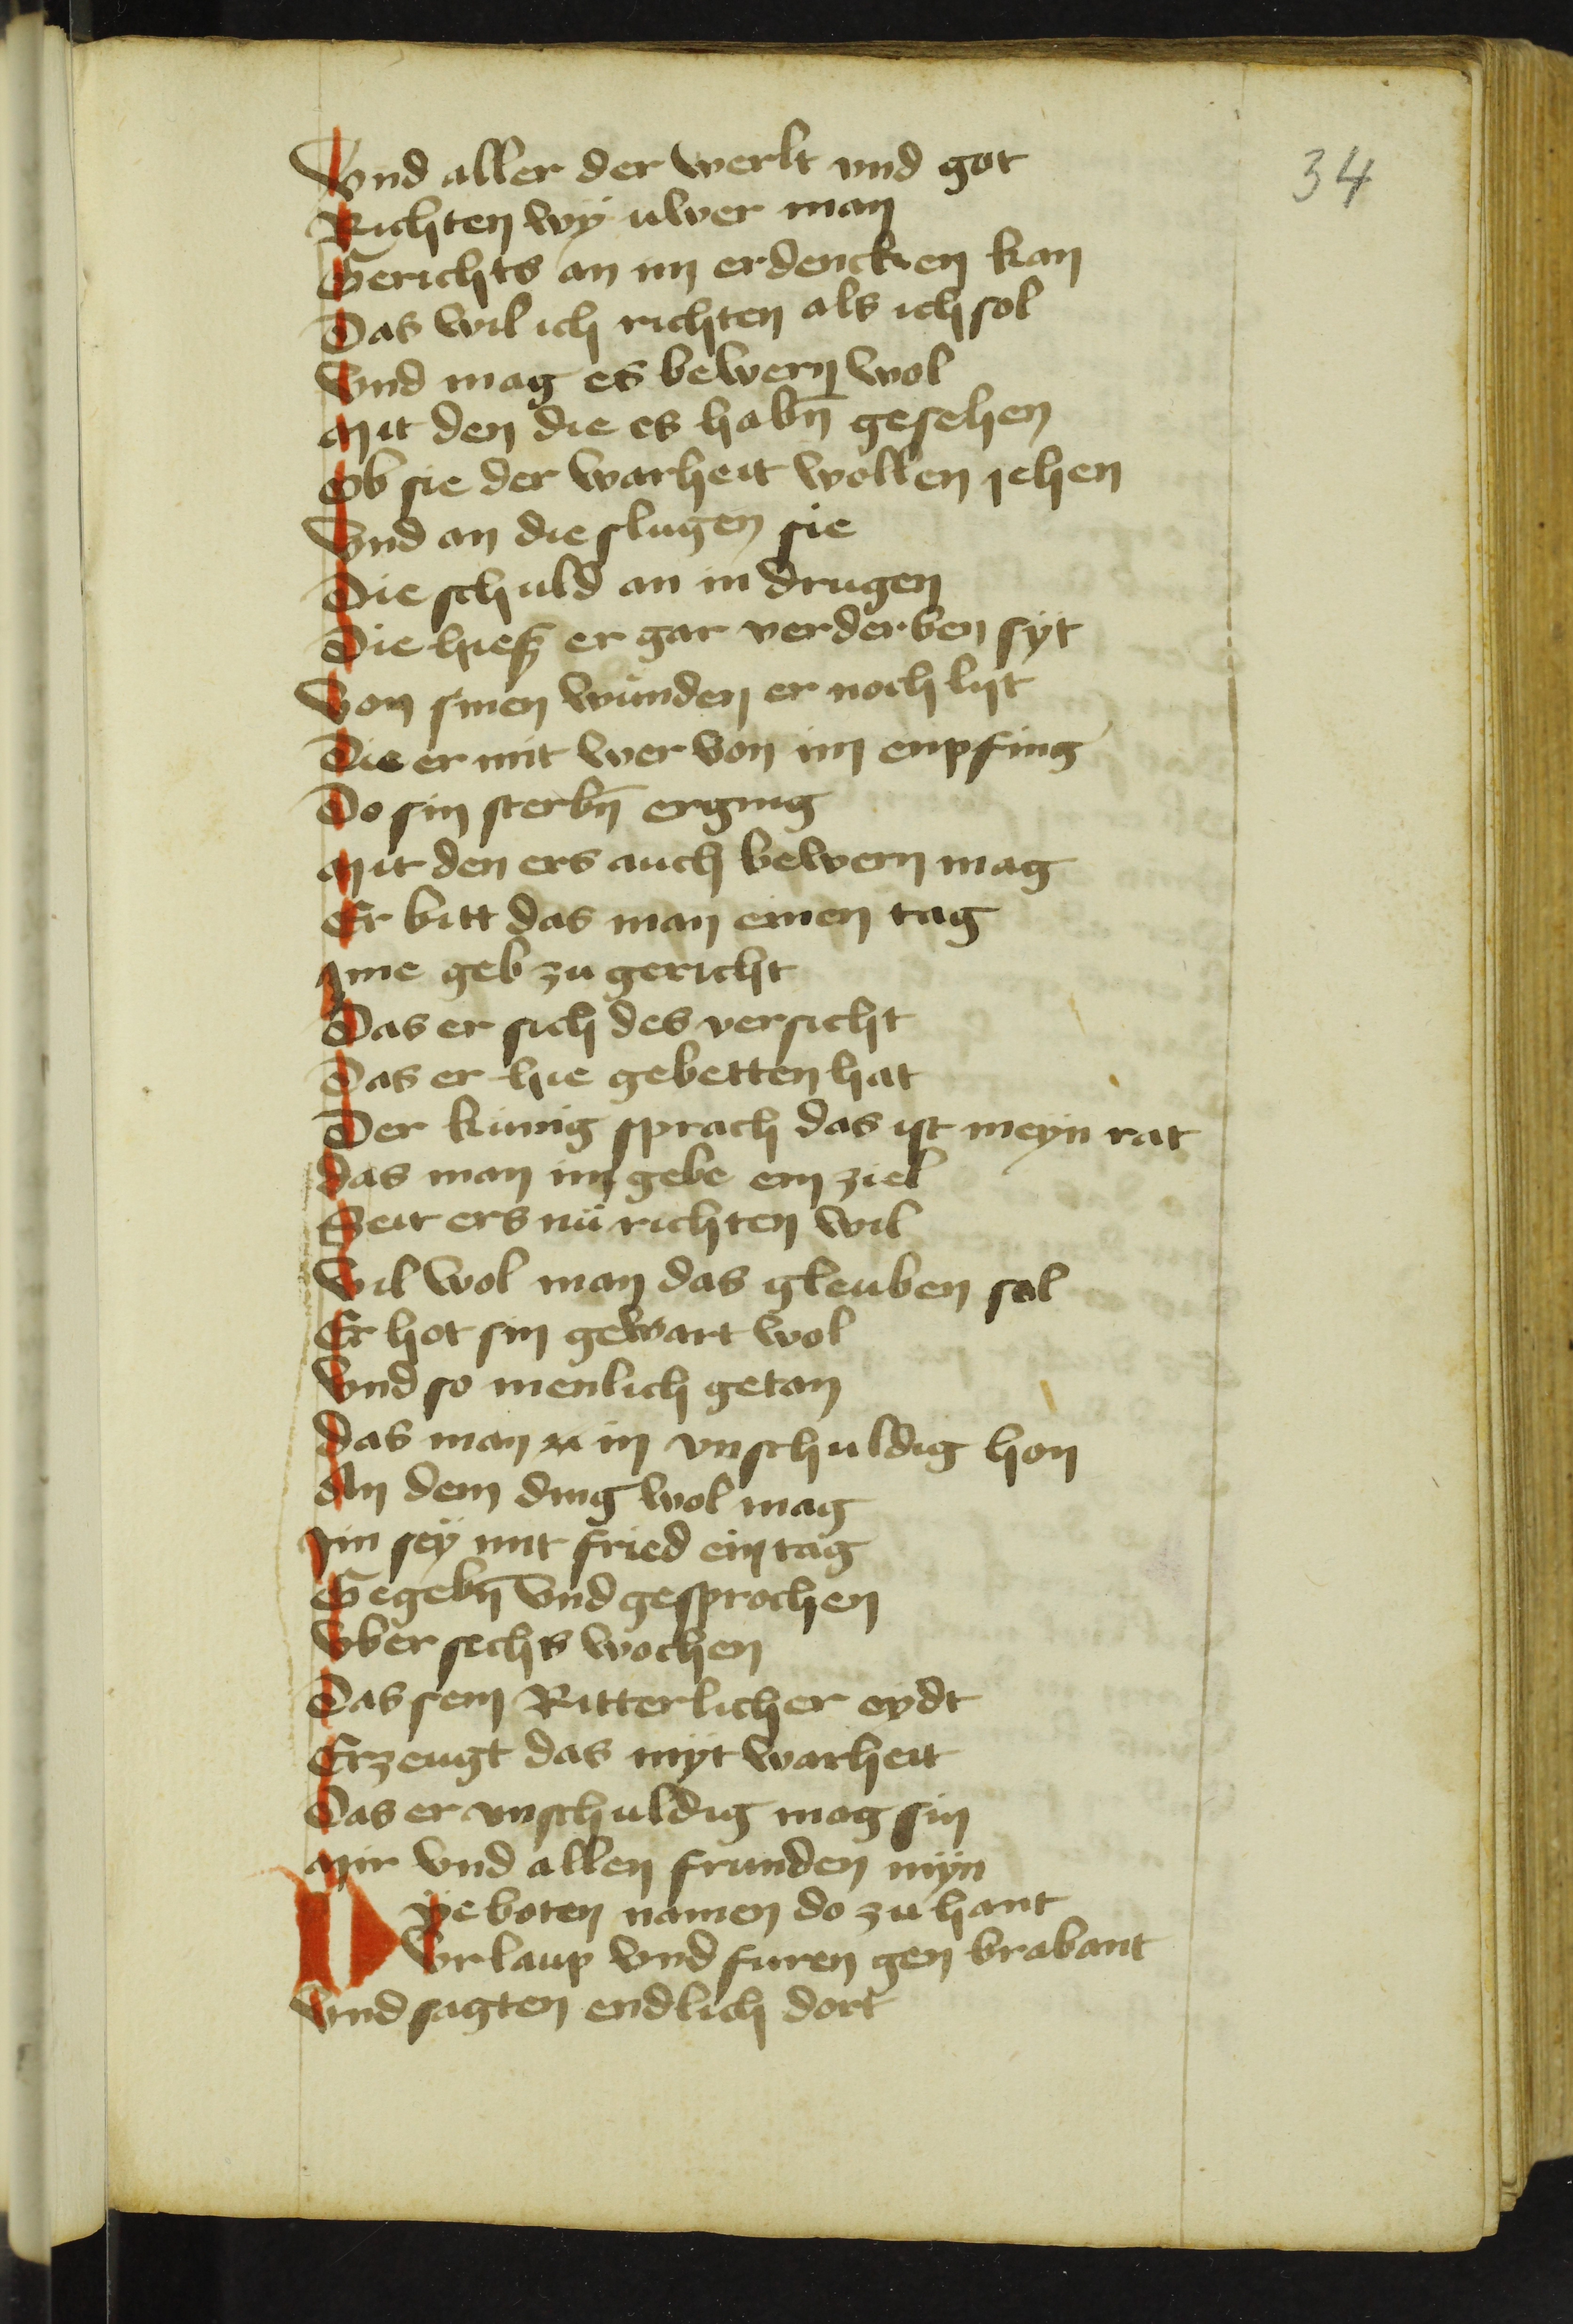 34
Vnd aller der werlt vnd got
Richten wÿ uwer man
Gerichts an im erdencken kan
Das wil ich richten als ich sol
Vnd mag es bewern wol
Mit den die es habn̄ gesehen
Ob sie der warheit wollen jehen
Vnd an die slugen sie
Die schuld an in drugen
Die hieß er gar verderben syt
Von sinen wunden er noch lijt
Die er mit wer von im enpfing
Do sin sterbn̄ erging
Mit den ers auch bewern mag
Er bitt das man einen tag
Ime geb zu gericht
Das er sich des versicht
Das er hie gebetten hat
Der kunig sprach das ist meyn rat
Das man im gebe ein ziel
Seit ers nü richten wil
Vil wol man das gleuben sal
Er hot sin gewart wol
Vnd so menlich getan
Das man in vnschuldig hon
An dem ding wol mag
Im seÿ mit fried ein tag
Gegebn̄ vnd gesprochen
Vber sechs wochen
Das sein Ritterlicher eydt
Erzeugt das mÿt warheit
Das er vnschuldig mag sin
Mir vnd allen frunden mÿn
Die boten namen do zu hant
Vrlaup vnd furen gen brabant
Vnd sagten endlich dort